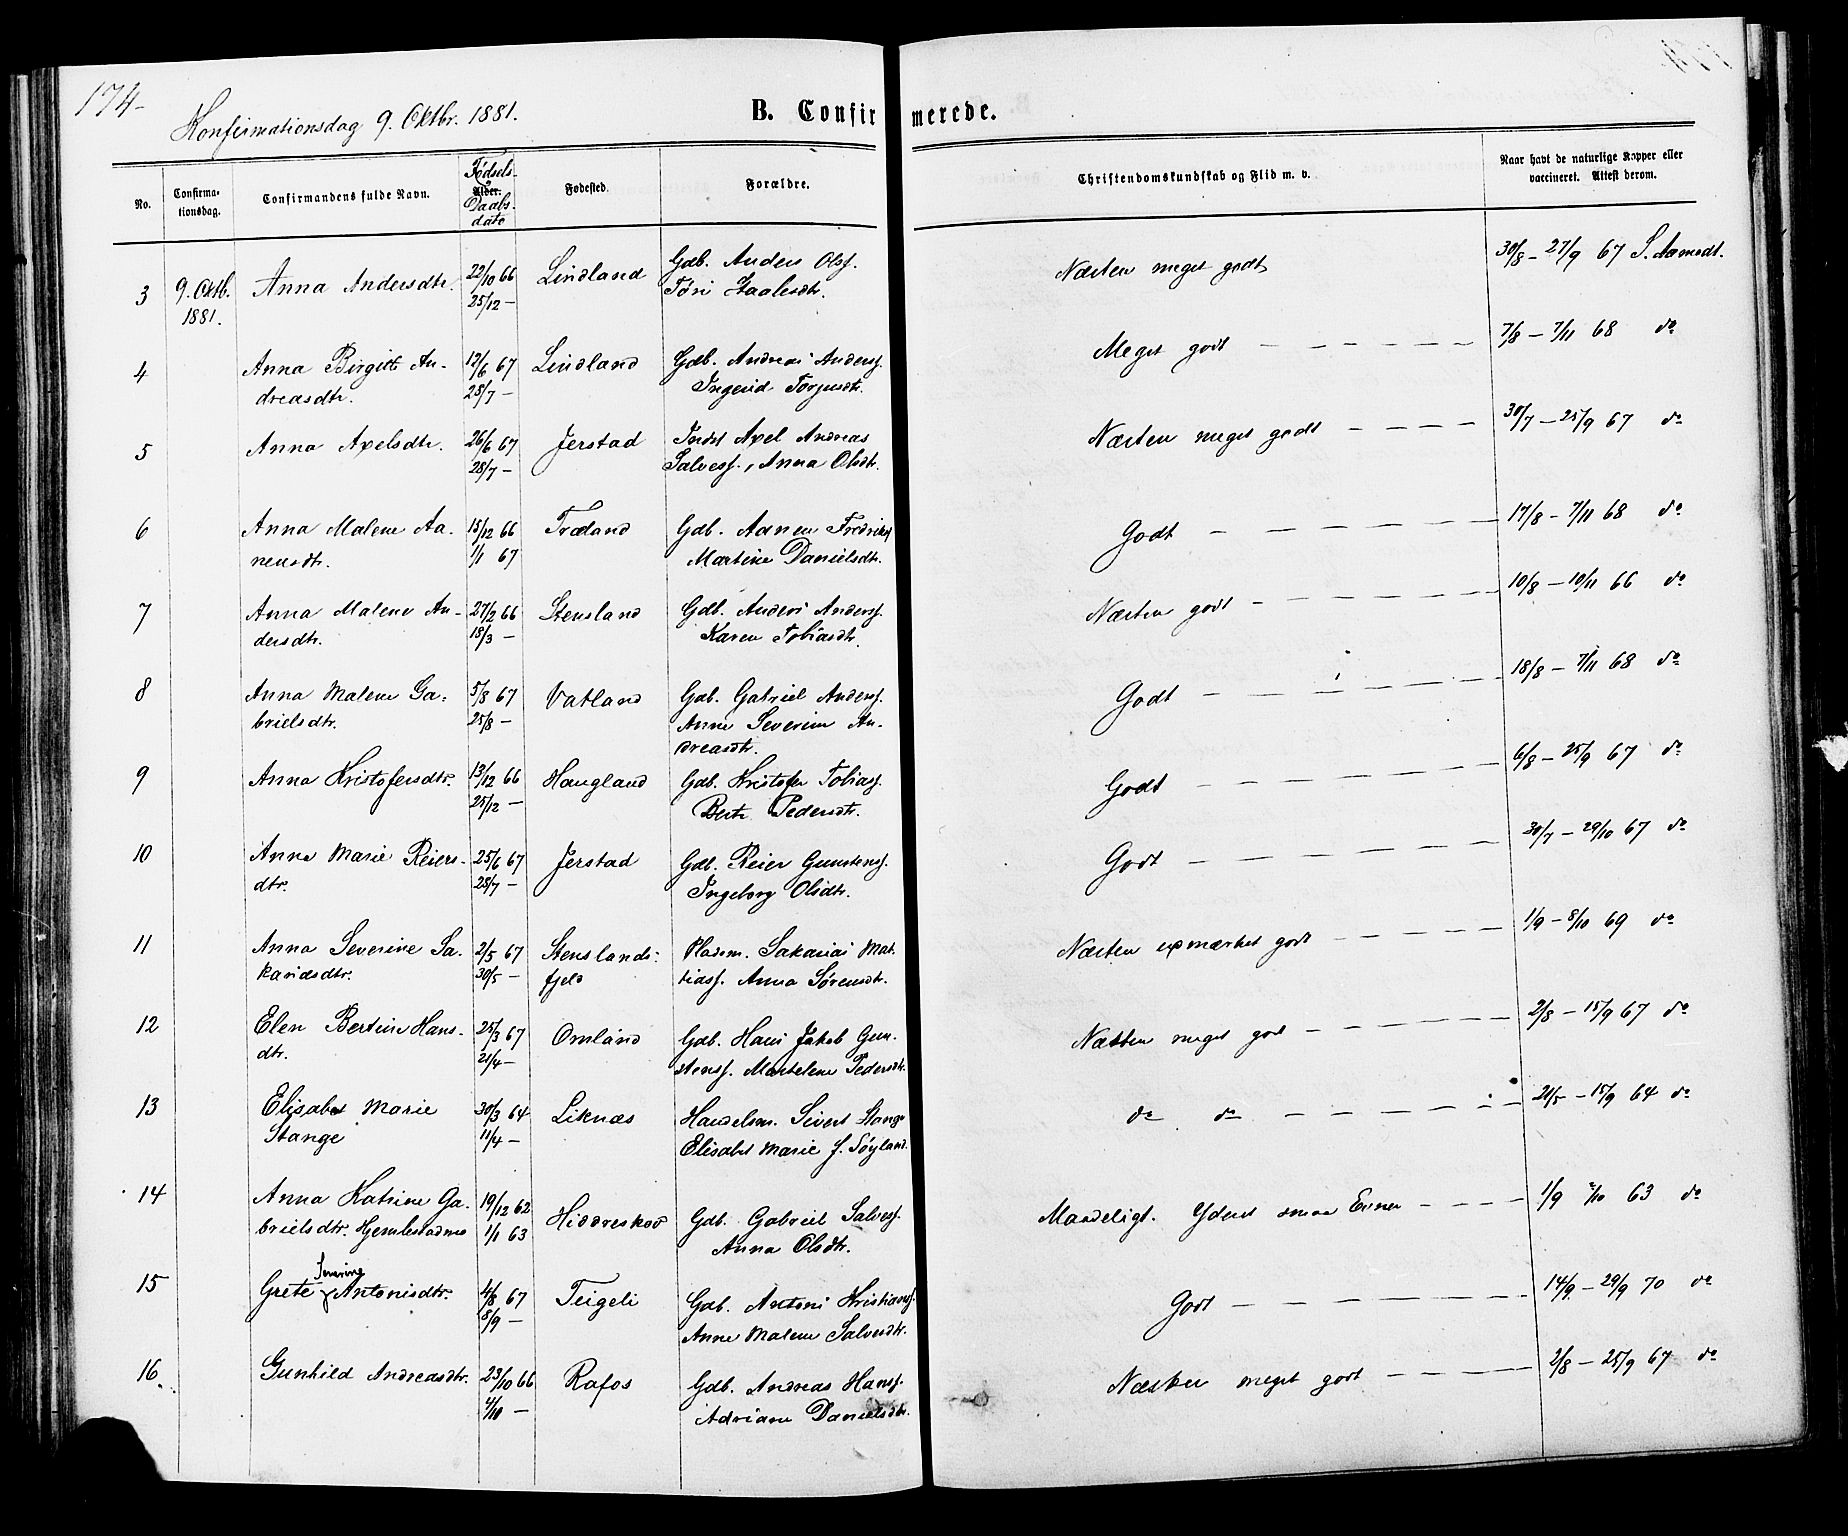 174-
Konfirmationsdag 9. Oktbr. 1881.
B. Confirmerede.
No.
Confirma-
tionsdag.
Confirmandens fulde Navn.
Fødsels-
Alder.
Daabs-
dato
Fødested.
Forældre.
Christendomskundskab og Flid m. v.
Naar havt de naturlige Kopper eller
vaccineret. Attest derom.
3 9. Oktb. Anna Andersdtr. 22/10 66 Lindland Gdb. Anders Olsf. Næsten meget godt 30/8 - 27/9 67 S. Aamodt.
1881. 25/12 - Tøri Aalesdtr.
4 Anna Birgitte An- 12/6 67 Lindland Gdb. Andreas Andersf. Meget godt - - - - - 7/8 - 7/11 68 do
dreasdtr. 28/7 - Ingerid Torjusdtr.
5 Anna Axelsdtr. 26/6 67 Jerstad Axel Andreas Næsten meget godt - - - - 30/7 - 25/9 67 do
28/7 - Salvesf., Anna Olsdtr.
6 Anna Malene Aa- 15/12 66 Træland Gdb. Aanen Fredriksf. Godt - - - - - - 17/8 - 7/11 68 do
nensdtr. 1/1 67 Martine Danielsdtr.
7 Anna Malene An- 27/2 66 Stensland Gdb. Anders Andersf. Næsten godt - - - - - - 10/8 - 10/11 66 do
dersdtr. 18/3 - Karen Tobiasdtr.
8 Anna Malene Ga- 5/8 67 Vatland Gdb. Gabriel Andersf. Godt - - - - - - 18/8 - 7/11 68 do
brielsdtr. 25/8 - Anne Severine An-
dreasdtr.
9 Anna Kristofersdtr. 13/12 66 Haugland Gdb. Kristofer Tobiasf. Godt - - - - - - 6/8 - 25/9 67 do
25/12 - Berte Pedersdtr.
10 Anne Marie Reiers- 25/6 67 Jerstad Gdb. Reier Gunstensf. Godt - - - - - - 30/7 - 29/10 67 do
dtr. 28/7 - Ingeborg Olsdtr.
11 Anna Severine Sa- 2/5 67 Stenslands- Pladsm. Sakarias Mat- Næsten upmærket godt - - - - 1/9 - 8/10 69 do
kariasdtr. 30/5 - fjeld tiasf. Anna Sørensdtr.
12 Elen Bertine Hans- 25/3 67 Omland Gdb. Hans Jakob Gun- Næsten meget godt - - - - - 2/8 - 15/9 67 do
dtr. 21/4 - stensf. Martelene Pedersdtr.
13 Elisabet Marie 30/3 64 Liknæs Handelsm. Sivert Stange do do - - - - - - 21/5 - 15/9 64 do
Stange 11/4 - Elisabet Marie f. Søyland.
14 Anna Katrine Ga- 19/12 62 Hiddreskov Gdb. Gabriel Salvesf. Maadeligt. Yderst smaa Evner - - - - 1/9 /10 63 do
brielsdtr. 1/1 63 Anna Olsdtr.
Severine
15 Grete Antonisdtr. 4/8 67 Teigeli Gdb. Antoni Kristiansf. Godt - - - - - - 14/9 - 29/9 70 do
8/9 - Anne Malene Salvesdtr.
16 Gunhild Andreasdtr. 23/10 66 Rafos Gdb. Andreas Hansf. Næsten meget godt - - - - 2/8 - 25/9 67 do
4/10 - Adriane Danielsdtr.